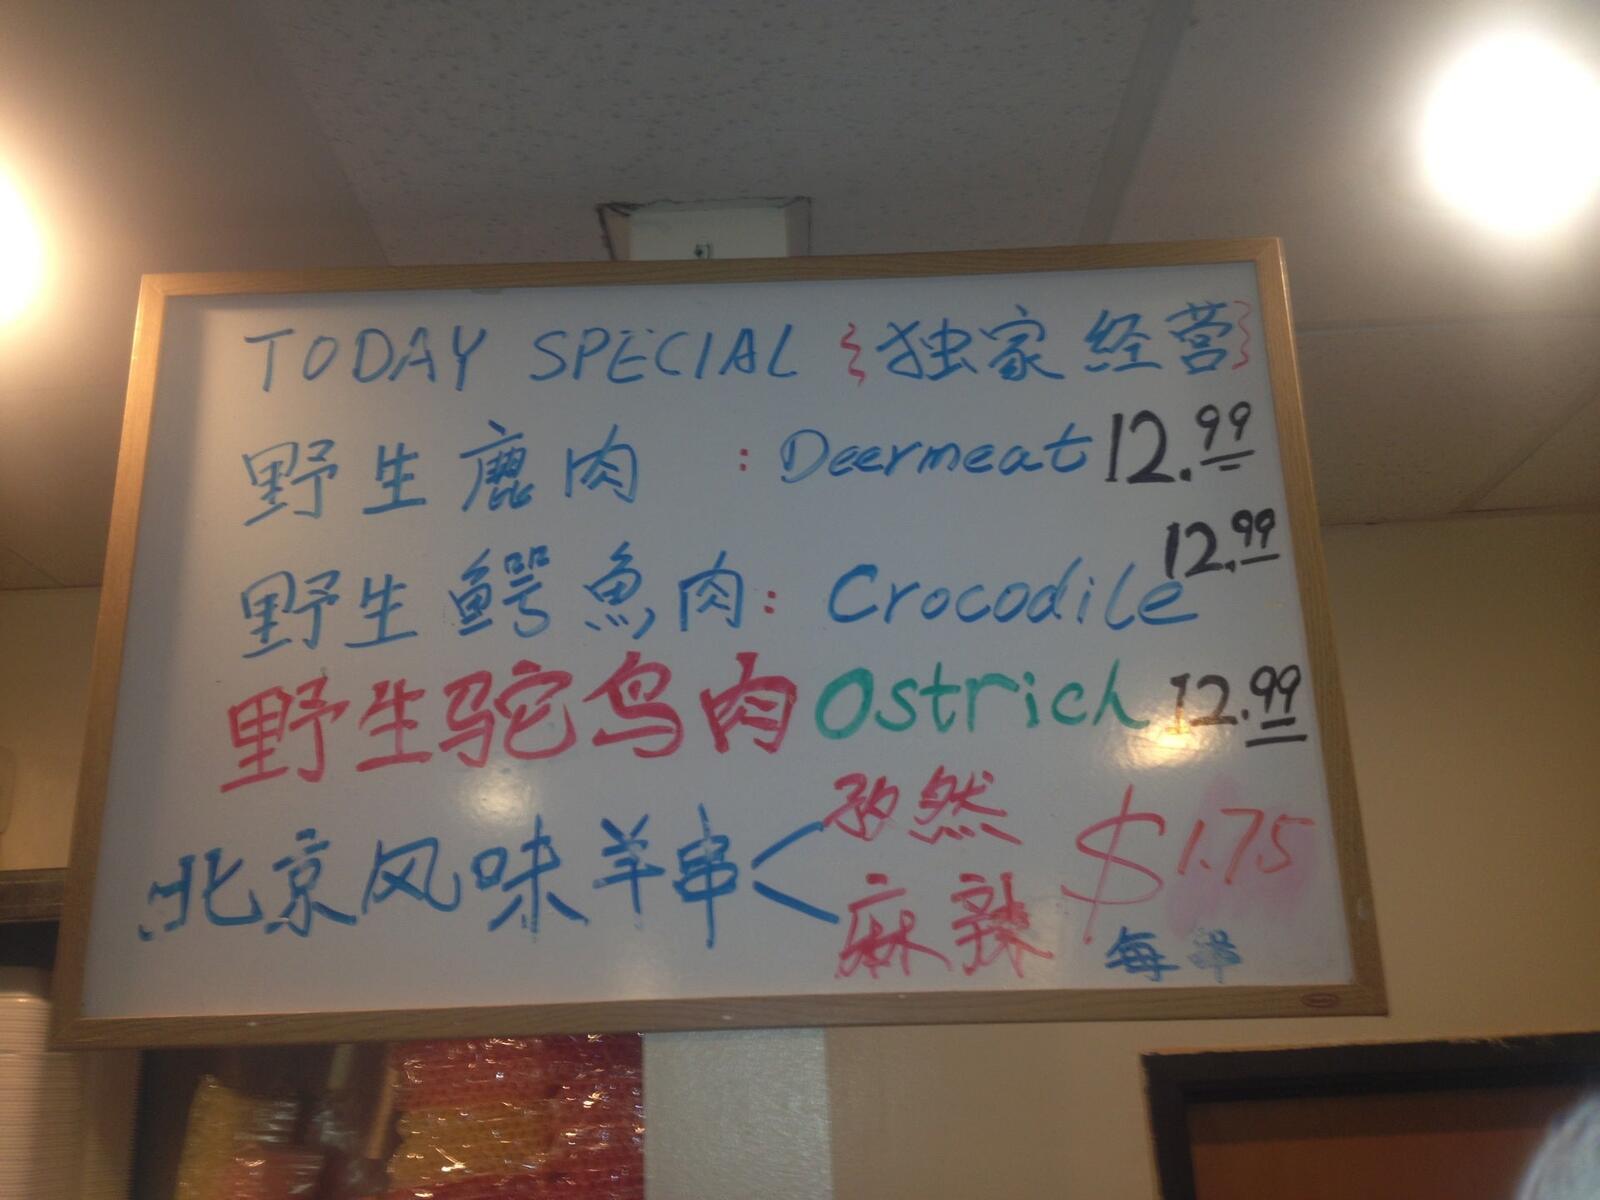 TODAY SPECIAL {独家经营}
野生鹿肉 : Deermeat 12.99
野生鳄魚肉: Crocodile 12.99
野生驼鸟肉 Ostrich 12.99
北京风味羊串 < 孜然
麻辣
$1.75
每串